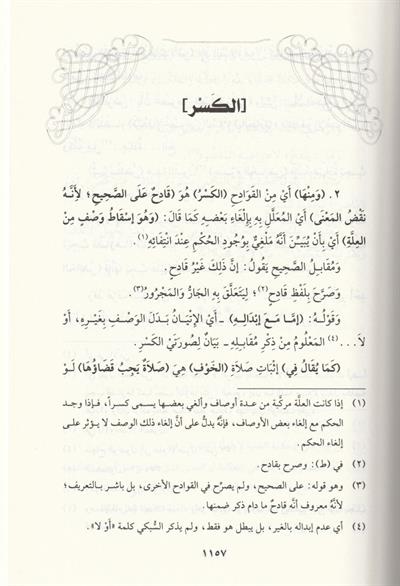 [الكَسْر]
٢. (وَمِنْهَا) أَيْ مِنَ القَوَادِحِ (الكَسْرُ) هُوَ (قَادِحٌ عَلَى الصَّحِيحِ؛ لِأَنَّهُ
نَقْضُ المَعْنَى) أَيْ المُعَلَّلِ بِهِ بِإِلْغَاءِ بَعْضِهِ كَمَا قَالَ: (وَهُوَ إِسْقَاطُ وَصْفٍ مِنَ
العِلَّةِ) أَيْ بِأَنْ يُبَيِّنَ أَنَّهُ مَلْغِيٌّ بِوُجُودِ الحُكْمِ عِنْدَ انْتِفَائِهِ(١).
وَمُقَابِلُ الصَّحِيحِ يَقُولُ: إِنَّ ذَلِكَ غَيْرُ قَادِحٍ.
وَصَرَّحَ بِلَفْظِ قَادِحٍ(٢)؛ لِيَتَعَلَّقَ بِهِ الجَارُّ وَالمَجْرُورُ(٣).
وَقَوْلُهُ: (إِمَّا مَعَ إِبْدَالِهِ) ـ أَيْ الإِتْيَانِ بَدَلَ الوَصْفِ بِغَيْرِهِ، أَوْ
لَا...(٤) المَعْلُومُ مِنْ ذِكْرِ مُقَابِلِهِ ـ بَيَانٌ لِصُورَتَيْ الكَسْرِ.
(كَمَا يُقَالُ فِي) إِثْبَاتِ صَلَاةِ (الخَوْفِ) هِيَ (صَلَاةٌ يَجِبُ قَضَاؤُهَا) لَوْ
(١) إذا كانت العلّة مركّبة من عدة أوصاف وألغي بعضها يسمى كسراً، فإذا وجد
الحكم مع إلغاء بعض الأوصاف، فإنّه يدلّ على أنّ إلغاء ذلك الوصف لا يؤثر على
إلغاء الحكم.
(٢) في (ط): وصرح بقادح.
(٣) وهو قوله: على الصحيح، ولم يصرّح في القوادح الأخرى، بل باشر بالتعريف؛
لأنّه معروف أنّه قادحٌ ما دام ذكر ضمنها.
(٤) أي عدم إبداله بالغير، بل يبطل هو فقط، ولم يذكر السُّبكي كلمة «أَوْ لا».
١١٥٧